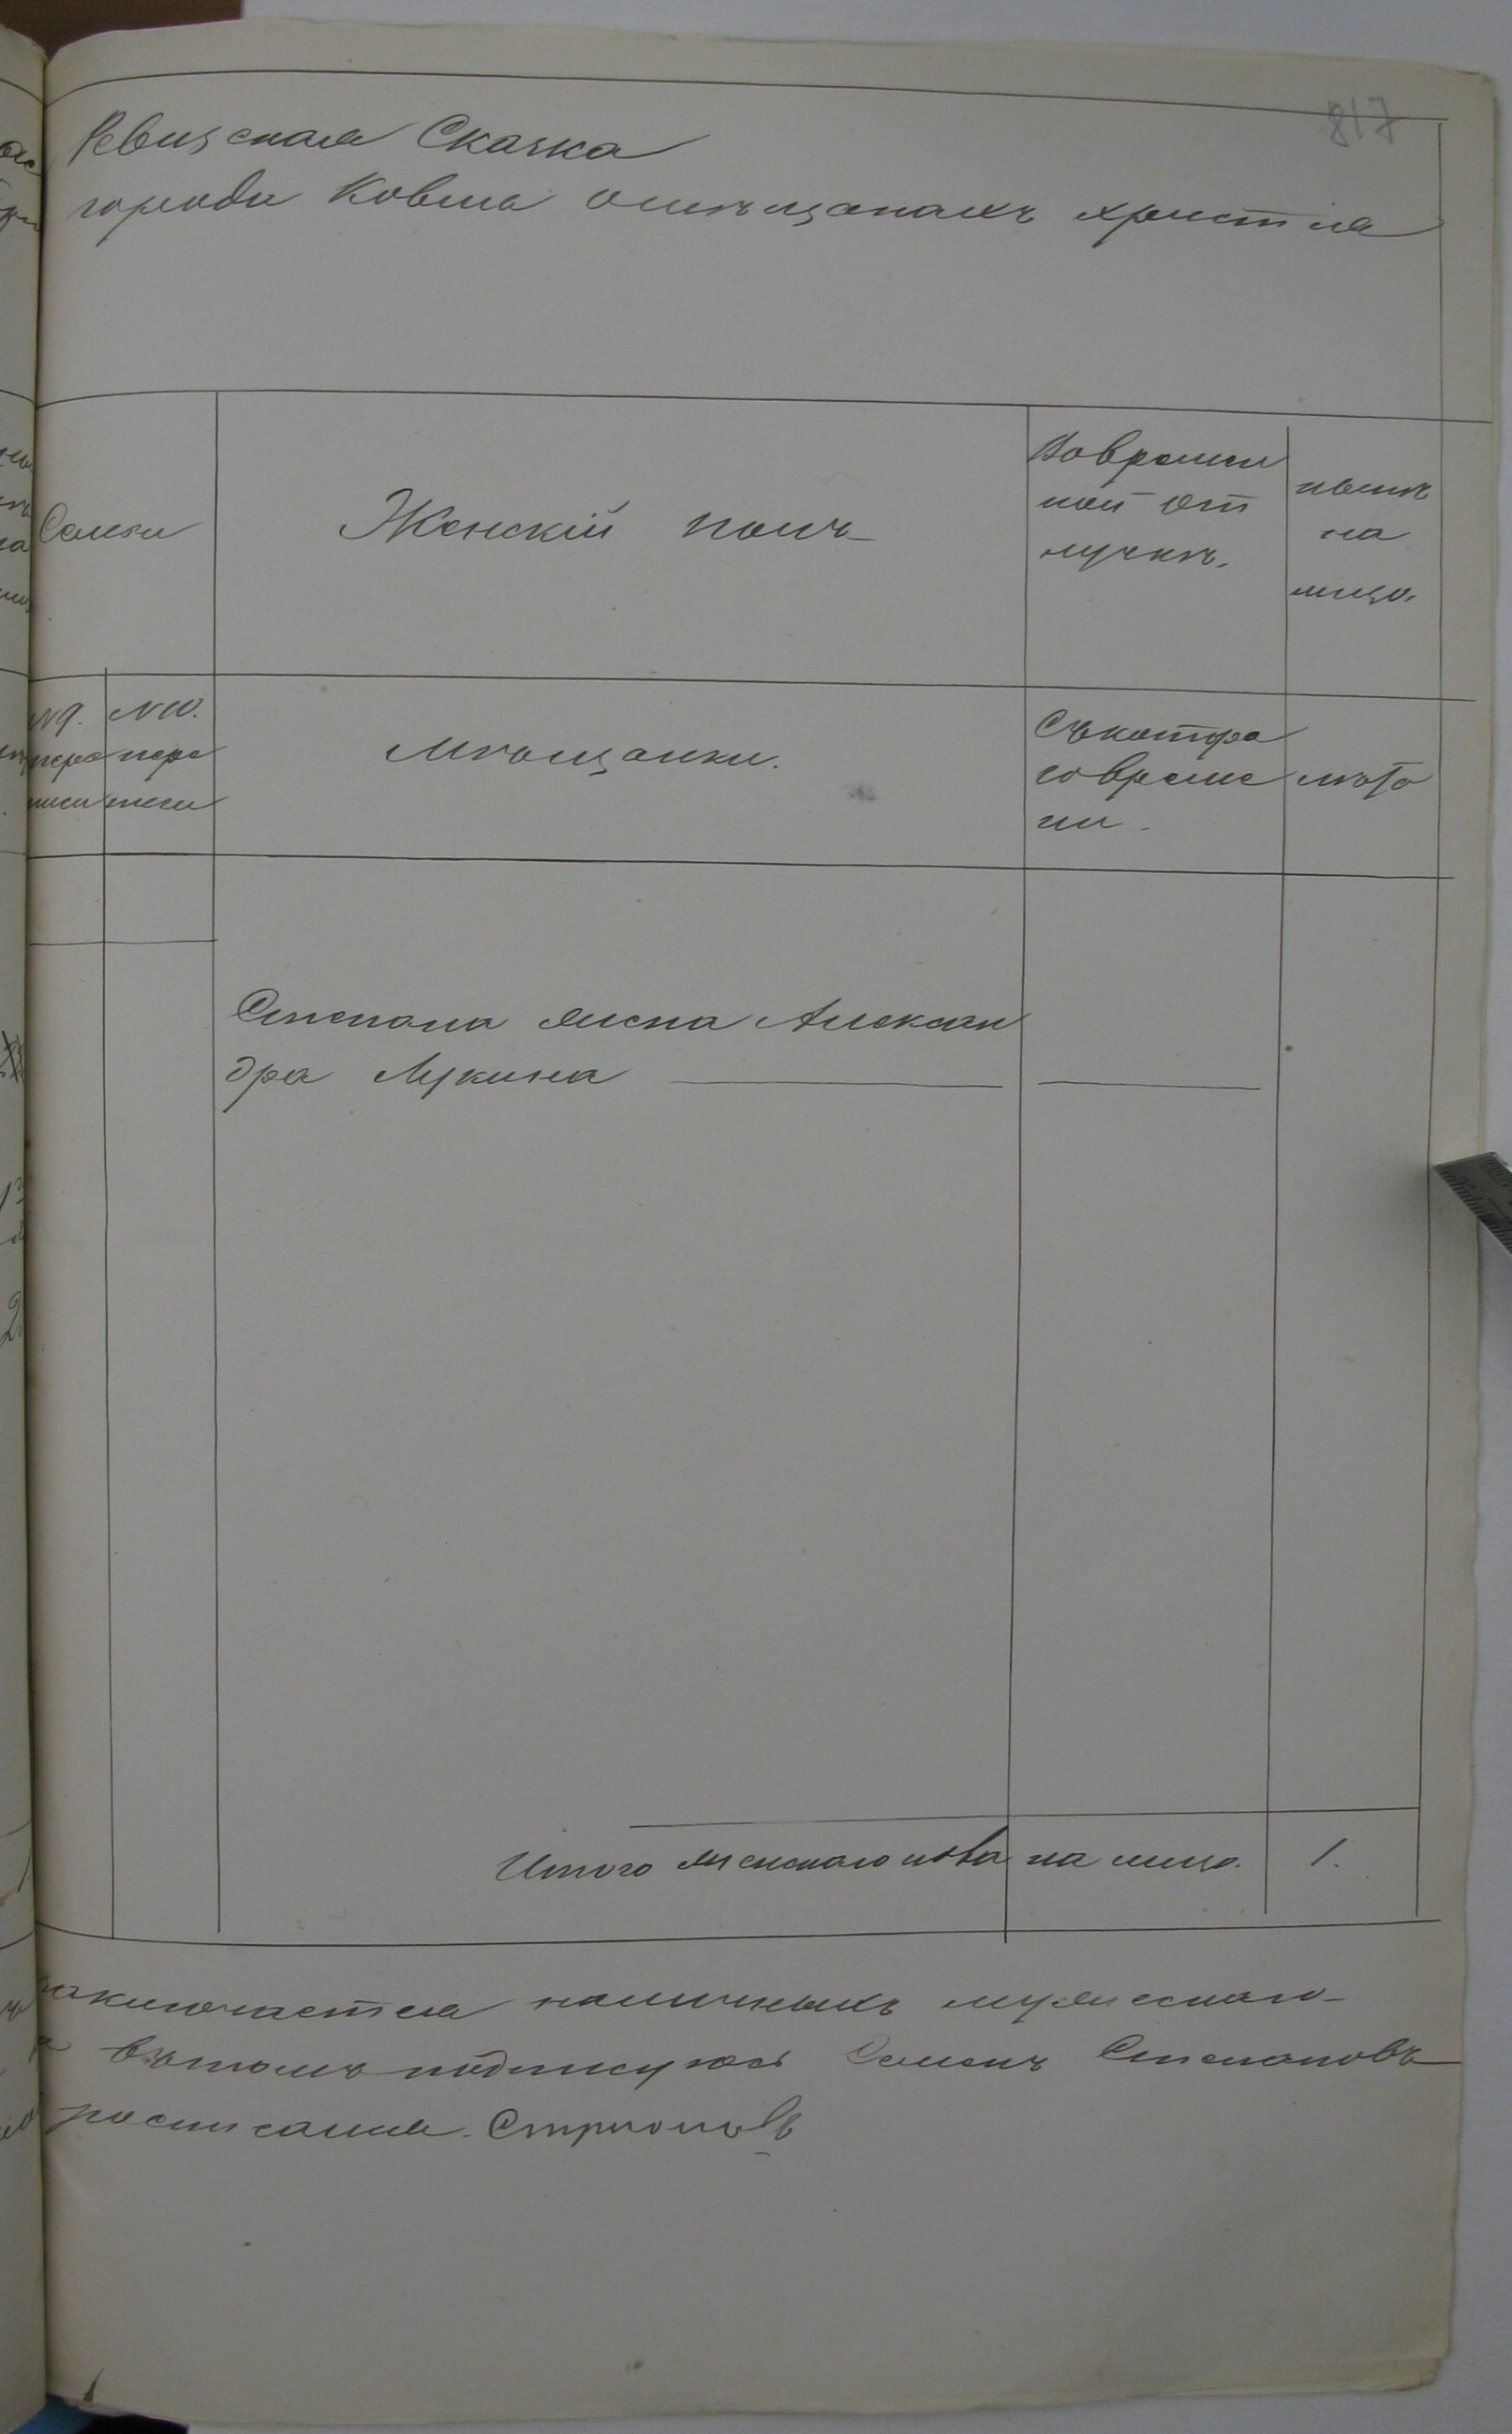 817
Ревизская Сказка
города Ковна омѣщанахъ христiа
Семьи
Женскій полъ
Вовремен
ной от
лучкѣ.
нынѣ
на
лицо.
№ 9.
пере
писи
№ 10.
пере
писи
Мѣщанки.
Съкотора
говреме
ни.
лѣта
Степана жена Алексан
дра Лукина
Итого женскаго пола на лицо. 1.
заключается наличныхъ мужескаго
вътомъ подписуюсь Семенъ Степановъ
росписался.